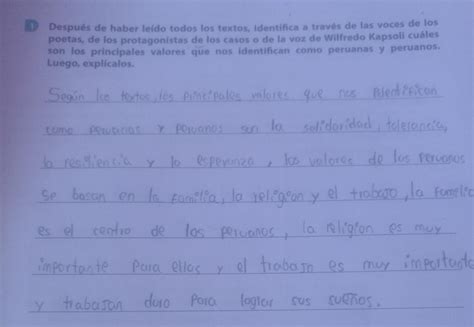 Después de haber leído todos los textos, identifica a través de las voces de los
poetas, de los protagonistas de los casos o de la voz de Wilfredo Kapsoli cuáles
son los principales valores que nos identifican como peruanas y peruanos.
Luego, explícalos.
Según los textos, los principales valores que nos identifican
como peruanas y peruanos son la solidaridad, tolerancia,
la resiliencia y la esperanza, los valores de los peruanos
se basan en la familia, la religion y el trabajo, la familia
es el centro de los peruanos, la religion es muy
importante para ellos y el trabajo es muy importante
y trabajan duro para lograr sus sueños.